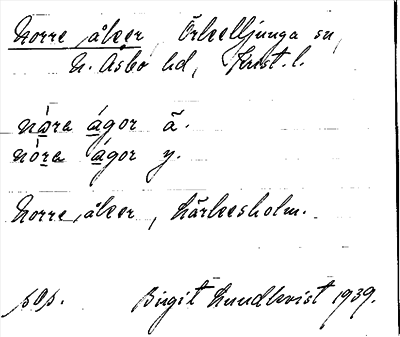 Norre, åker, Örkelljunga sn,
N. Åsbo hd, Krist. l.
nòra ágor ä.
nòra ágor y.
Norre, åker, Lärkesholm.
sos. Birgit Lundkvist 1939.